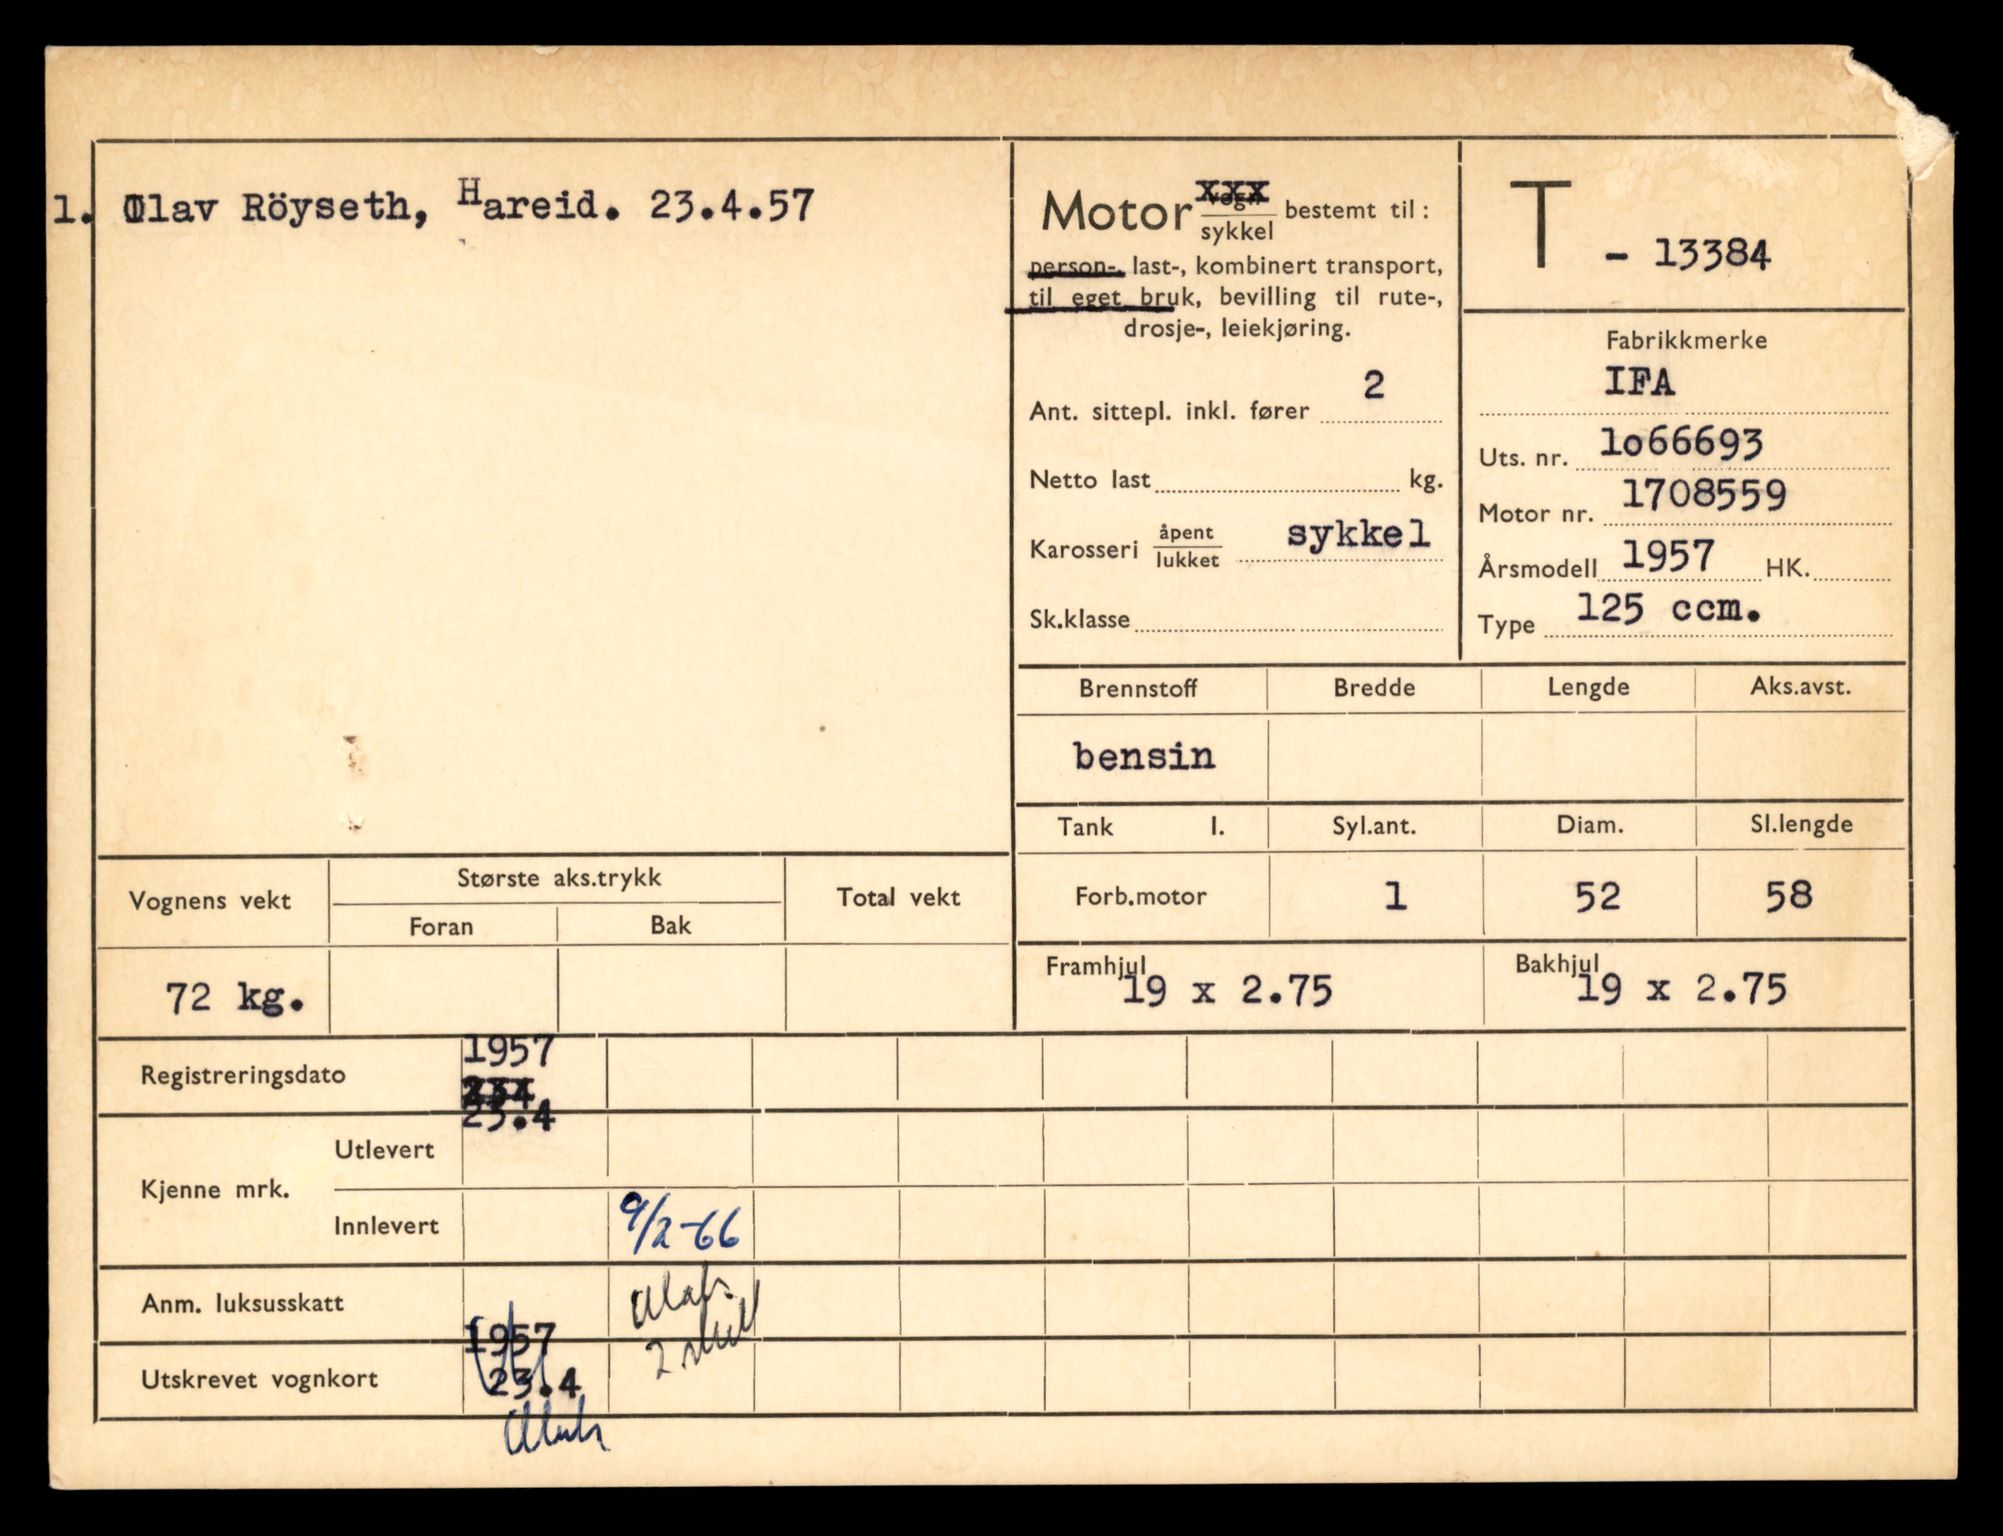 1. Olav Röyseth, Hareid. 23.4.57
Motor vogn/sykkel bestemt til:
person-, last-, kombinert transport,
til eget bruk, bevilling til rute-,
drosje-, leiekjøring.
Ant. sittepl. inkl. fører 2
Netto last kg.
Karosseri åpent/lukket sykkel
Sk.klasse
T - 13384
Fabrikkmerke
IFA
Uts. nr. 1o66693
Motor nr. 1708559
Årsmodell 1957 HK.
Type 125 ccm.
Brennstoff Bredde Lengde Aks.avst.
bensin
Tank l. Syl.ant. Diam. Sl.lengde
Forb.motor 1 52 58
Framhjul 19 x 2.75 Bakhjul 19 x 2.75
Vognens vekt Største aks.trykk Total vekt
Foran Bak
72 kg.
Registreringsdato 1957
23.4
Kjenne mrk. Utlevert
Innlevert 9/2-66
Anm. luksusskatt
2 skilt
Utskrevet vognkort 1957
23.4